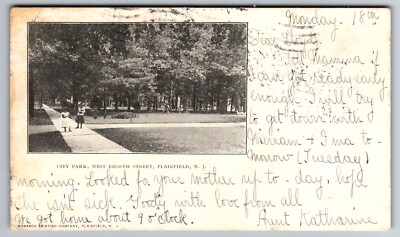 Monday. 18th
Dear
Tell Mamma if
I am not ready early
enough I will try
to get down with
Miriam + Ima to-
morrow (Tuesday)
CITY PARK, WEST EIGHTH STREET, PLAINFIELD, N. J.
morning. Looked for your mother up to-day, hope
she isn't sick. Goody with love from all
We got home about 9 o'clock. Aunt Katharine
MONARCH PRINTING COMPANY, PLAINFIELD, N. J.